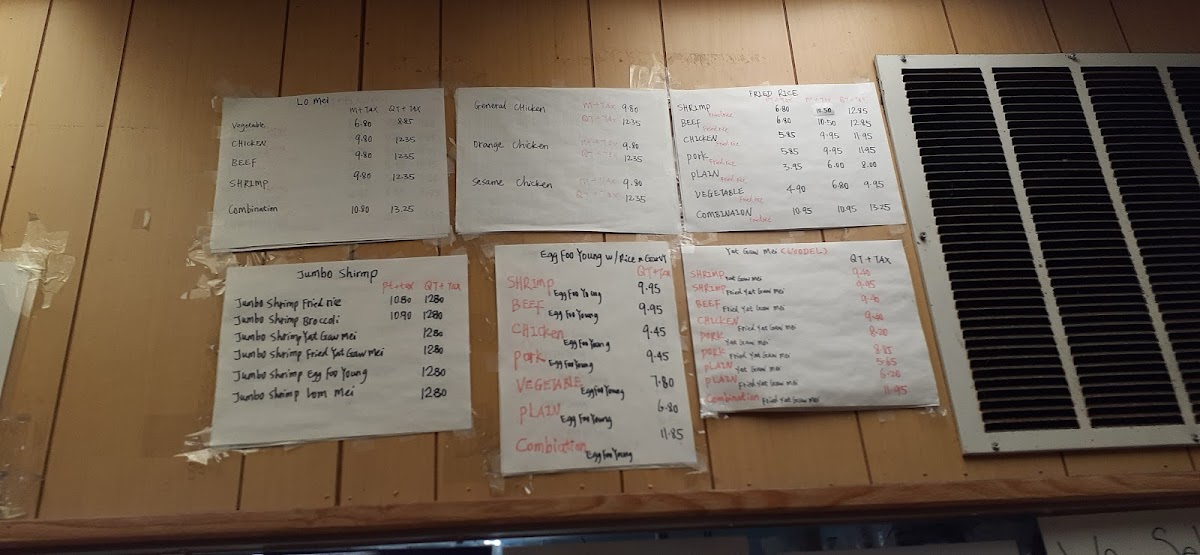 Lo mei
M+TAX QT+TAX
Vegetable 6.80 8.85
CHICKEN 9.80 12.35
BEEF 9.80 12.35
SHRIMP 9.80 12.35
Combination 10.80 13.25
General CHicken M+TAX 9.80
QT+TAX 12.35
Orange Chicken 9.80
12.35
Sesame Chicken 9.80
QT+TAX 12.35
FRIED RICE
SHRIMP Fried rice 6.80 10.50 12.85
BEEF Fried rice 6.80 10.50 12.85
CHICKEN Fried rice 5.85 9.95 11.95
pork Fried rice 5.85 9.95 11.95
PLAIN Fried rice 3.95 6.00 8.00
VEGETABLE Fried rice 4.90 6.80 9.95
COMBINAION Fried rice 10.95 10.95 13.25
Jumbo Shirmp
Pt+tax QT+TAX
Jumbo Shrimp Fried rice 10.80 12.80
Jumbo Shrimp Broccoli 10.90 12.80
Jumbo Shrimp Yat Gaw mei 12.80
Jumbo Shrimp Fried Yat Gaw mei 12.80
Jumbo Shrimp Egg Foo Young 12.80
Jumbo Shrimp Lom mei 12.80
Egg Foo Young w/Rice n Gravy
QT+TAX
SHRIMP Egg Foo Young 9.95
BEEF Egg Foo Young 9.95
CHICKen Egg Foo Young 9.45
pork Egg Foo Young 9.45
VEGETABLE Egg Foo Young 7.80
PLAIN Egg Foo Young 6.80
Combiation Egg Foo Young 11.85
Yat Gaw Mei
QT+TAX
SHRIMP Yat Gaw Mei 9.40
SHRIMP Fried Yat Gaw Mei 9.95
BEEF Fried Yat Gaw Mei
CHICKEN Fried Yat Gaw Mei
PORK Yat Gaw Mei 8.20
PORK Fried Yat Gaw Mei 8.85
PLAIN Yat Gaw Mei 5.65
PLAIN Fried Yat Gaw Mei 6.20
Combination Fried Yat Gaw Mei 11.95